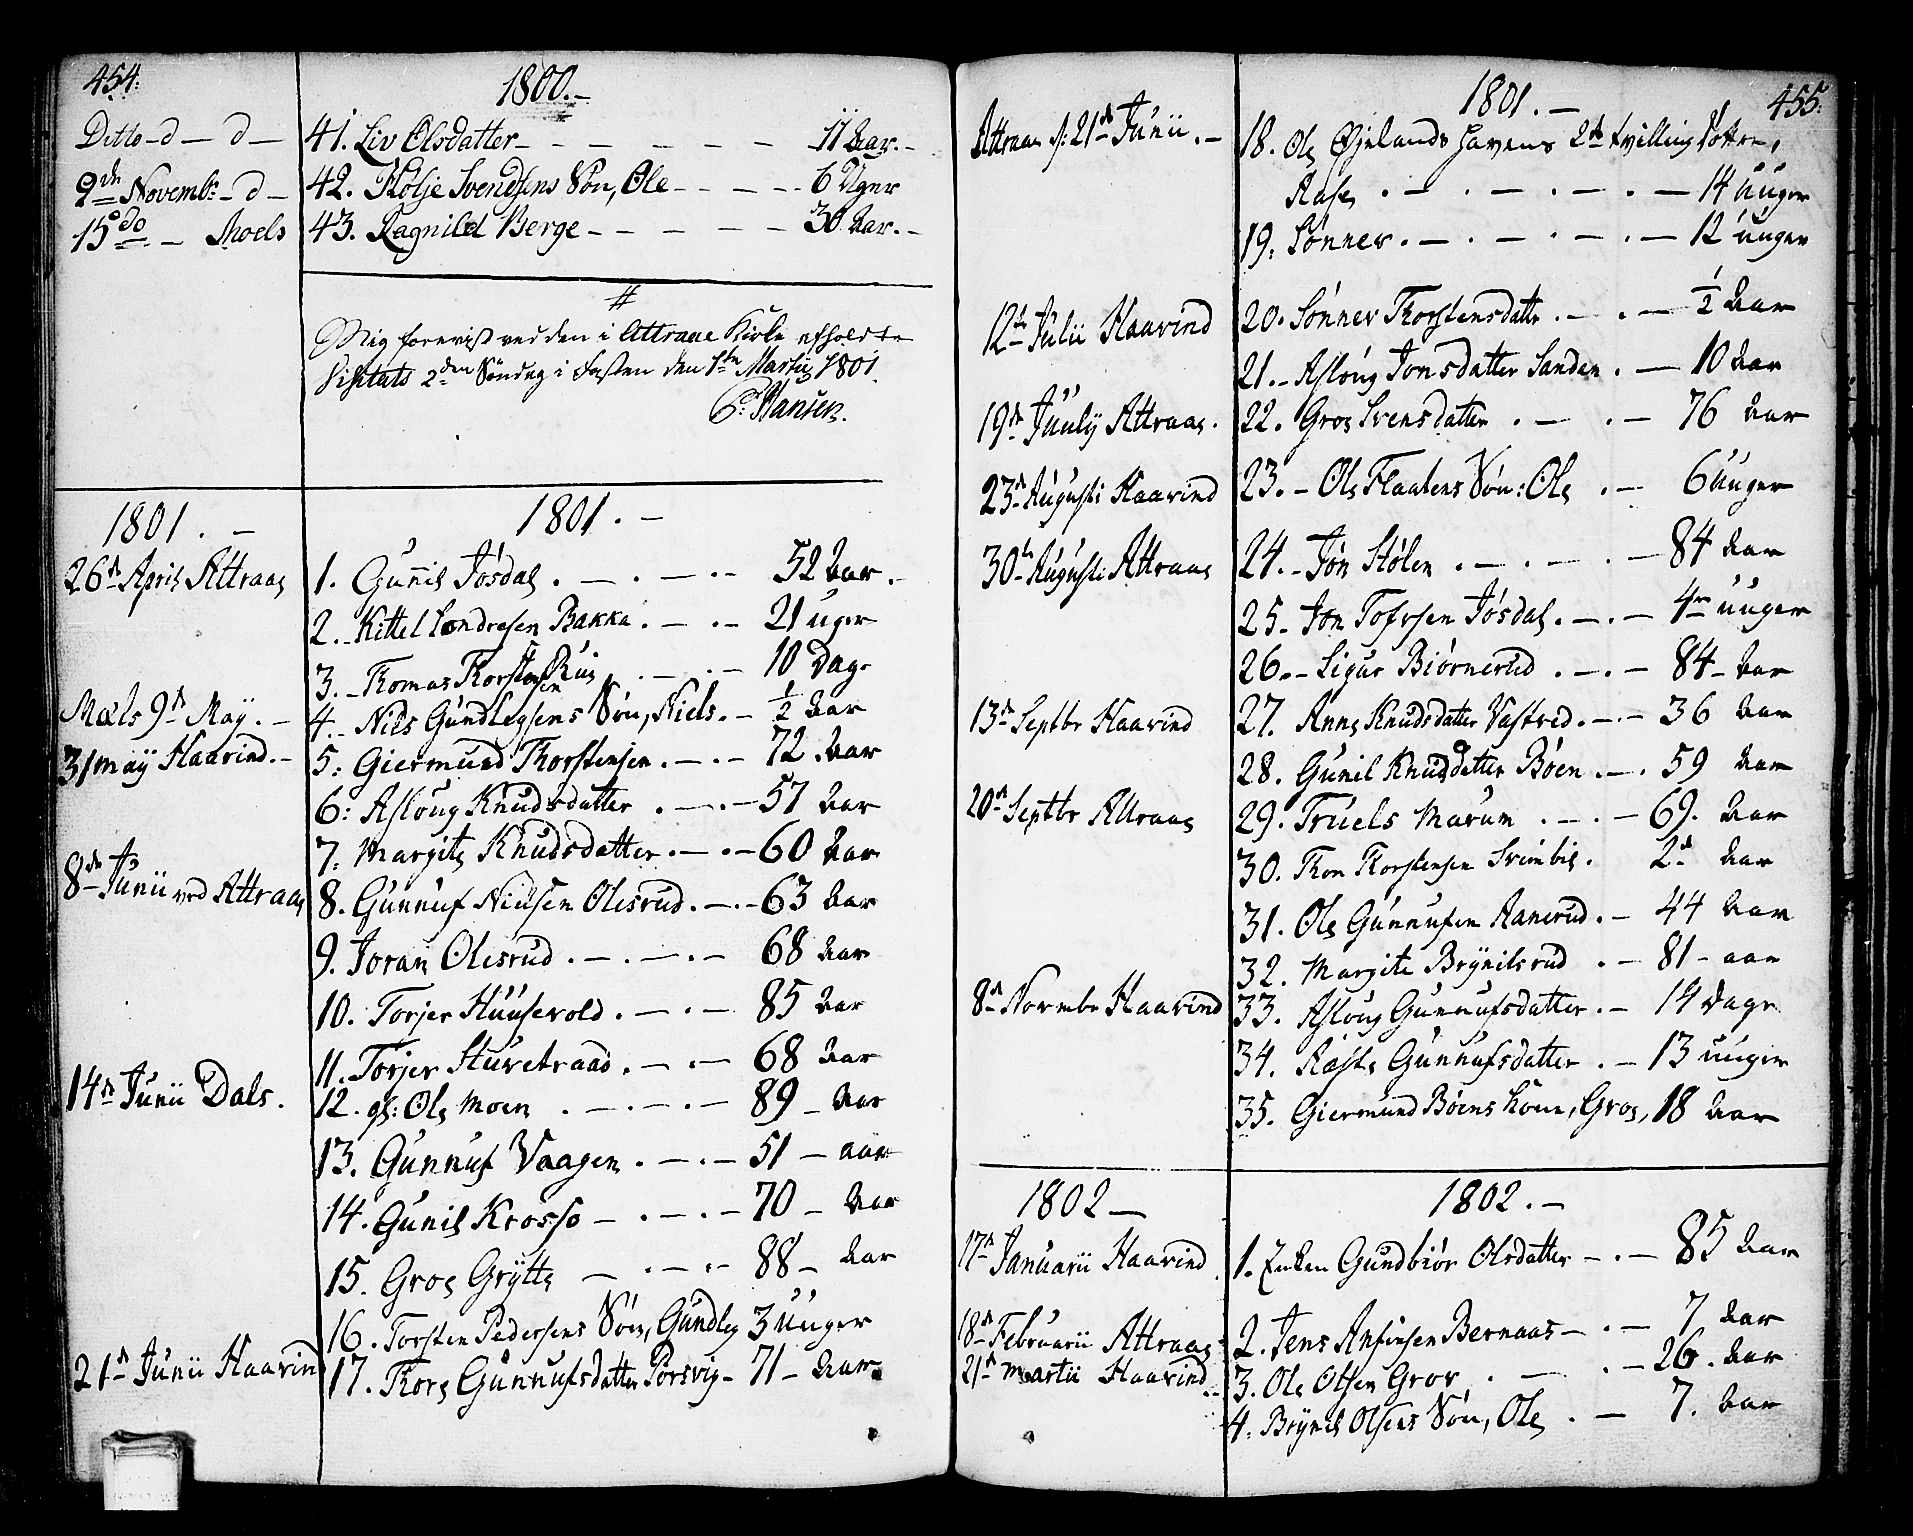 454.
1800.-
Ditto - d - d - 41. Liv Olsdatter - - - - - - 11 Aar. -
9de Novembr - d - 42. Kolje Svendsens Søn, Ole - - - - 6 Uger
15 do - Moels 43. Ragnild Berge - - - - - 30 Aar. -
#
Mig foreviist ved den i Attraae Kirke afholdte
Visitats 2den Søndag i Fasten den 1ste Martii 1801.
P: Hansen.
1801. - 1801. -
26d April Attraae 1. Gunnil Jøsdal . - . - . - 52 Aar. -
2. Kittel Sondresen Bakka . - . - 21 uger
3. Thomas Thorstensen Rui . - . - 10 Dage
Mæls 9d May. - 4. Nils Gundlegsens Søn, Niels. - 1/2 Aar
31 may Haavind. - 5. Giermund Thorstensen . - . - 72 Aar
6: Asloug Knudsdatter . - . - 57 Aar
7: Margite Knudsdatter . - . - 60 Aar
8de Junii ved Attraae 8. Gunnuf Nielsen Olesrud. - . - 63 Aar
9. Joran Olesrud . - . - . - 68 Aar
10. Torjer Huusevold . - . - 85 Aar
11. Torjer Sturetraad . - . - 68 Aar
14de Junii Dals. 12. gl: Ole Moen . - . - . - 89 - Aar
13. Gunnuf Vaagen . - . - 51 - aar
14. Gunil Krosso - . - . - 70 - Aar
15. Groe Grytte - . - . - 88 - Aar
16. Torsten Pedersens Søn, Gundleg 3 uuger
21d Junii Haavin 17. Thore Gunnufsdatter Porsvig - 71 - Aar
455.
1801. -
Attraae d: 21de Junii. - 18. Ole Øjelands Havens 2de tvilling døttre,
Aase . - . - . - . - 14 uuger
19. Sønnev . - . - . - . - 12 uuger
12te Julii Haavind 20. Sønnev Thorstensdatter . - . - 1/2 Aar
21. - Asloug Jonsdatter Sanden . - 10 Aar
19de Juuly Attraae. 22. Groe Svensdatter . - . - 76 Aar
23d Augusti Haavind 23. - Ole Flaatens Søn: Ole . - 6 uuger
30te Augusti Attraae 24. - Jøn Stølen . - . - . - 84 Aar
25. Jon Tofvsen Jøsdal . - . - 4re uuger
26. - Sigur Biørnerud . - . - 84 - Aar
13d Septbr Haavind 27. Anne Knudsdatter Vastved. - . - 36 Aar
28. Gunil Knudsdatter Bøen . - . 59 Aar
20d Septbr Attraae 29. Truels Marum . - . - 69. Aar
30. Thon Thorstensen Svinbil . 2d Aar
31. Ole Gunnufsen Aanerud . - 44 Aar
32. Margite Brynilsrud . - 81 - aar
8d Novembr Haavind 33. Asloug Gunnufsdatter . - 14 Dage
34. Aaste Gunnufsdatter . - 13 uuger
35. Giermund Bøens Kone, Groe, 18 Aar
1802 - 1802. -
17d Januarii Haavind 1. Enken Gundbiør Olsdatter - . - 85 Aar
18d Februarii Attraae 2. Jens Ansinsen Bernaas - . - 7 Aar
21d Martii Haavind 3. Ole Olsen Grov . - . - 26. Aar
4. Brynil Olsens Søn, Ole . - 7. Aar